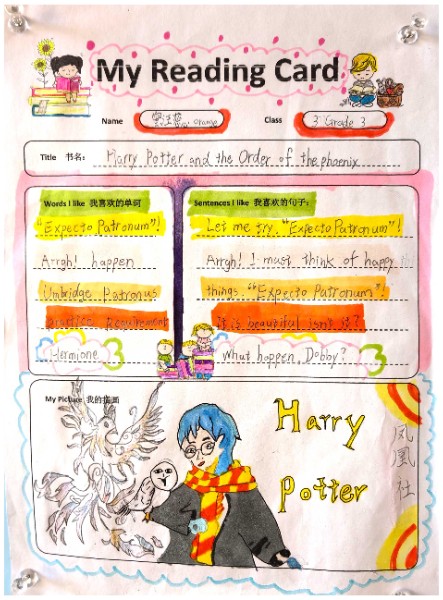 My Reading Card
Name orange Class 3 Grade 3
Title 书名: Harry Potter and the Order of the phoenix
Words I like 我喜欢的单词
"Expecto Patronum"!
A-rgh! happen
Umbridge Patronus
practice Requirement
Hermione 3
Sentences I like 我喜欢的句子:
Let me try. "Expecto Patronum"!
Arrgh! I must think of happy
things "Expecto Patronum"!
It is beautiful isn't it?
What happen, Dobby? 3
My Picture 我的
Harry
Potter
凤凰社